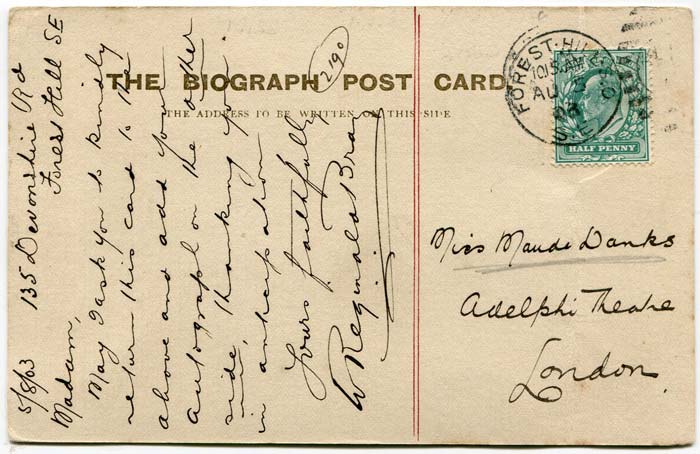 THE BIOGRAPH POST CARD.
2190
THE ADDRESS TO BE WRITTEN ON THIS SIDE
5/8/03 135 Devonshire Rd
Forest Hill SE
Madam,
May I ask you to kindly
return this card to the
above and add your
Autograph on the other
side, thanking you
in anticipation
Yours faithfully
W Reginald Bray
FOREST-HILL
10.15 AM
AU 5
03
S.E.
HALF PENNY
Miss Maude Danks
Adelphi Theatre
London.